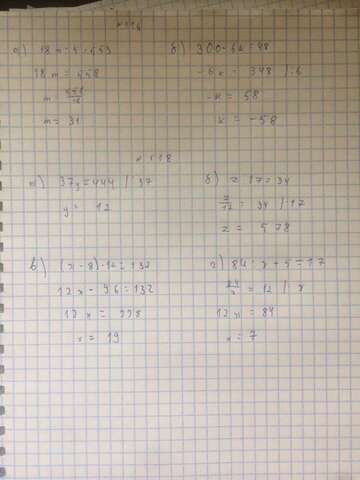 а) 18m - 5 = 553 б) 300 - 6x = 48
18m = 558 -6x = 348 / :6
m = 558/18 -x = 58
m = 31 x = -58
№ 518
а) 37y = 444 / 37 б) z : 17 = 34
y = 12 z/17 = 34 / · 17
z = 578
в) (x - 8) · 12 = 132 г) 84 : x + 5 = 17
12x - 96 = 132 84/x = 12 / x
12x = 228 12x = 84
x = 19 x = 7